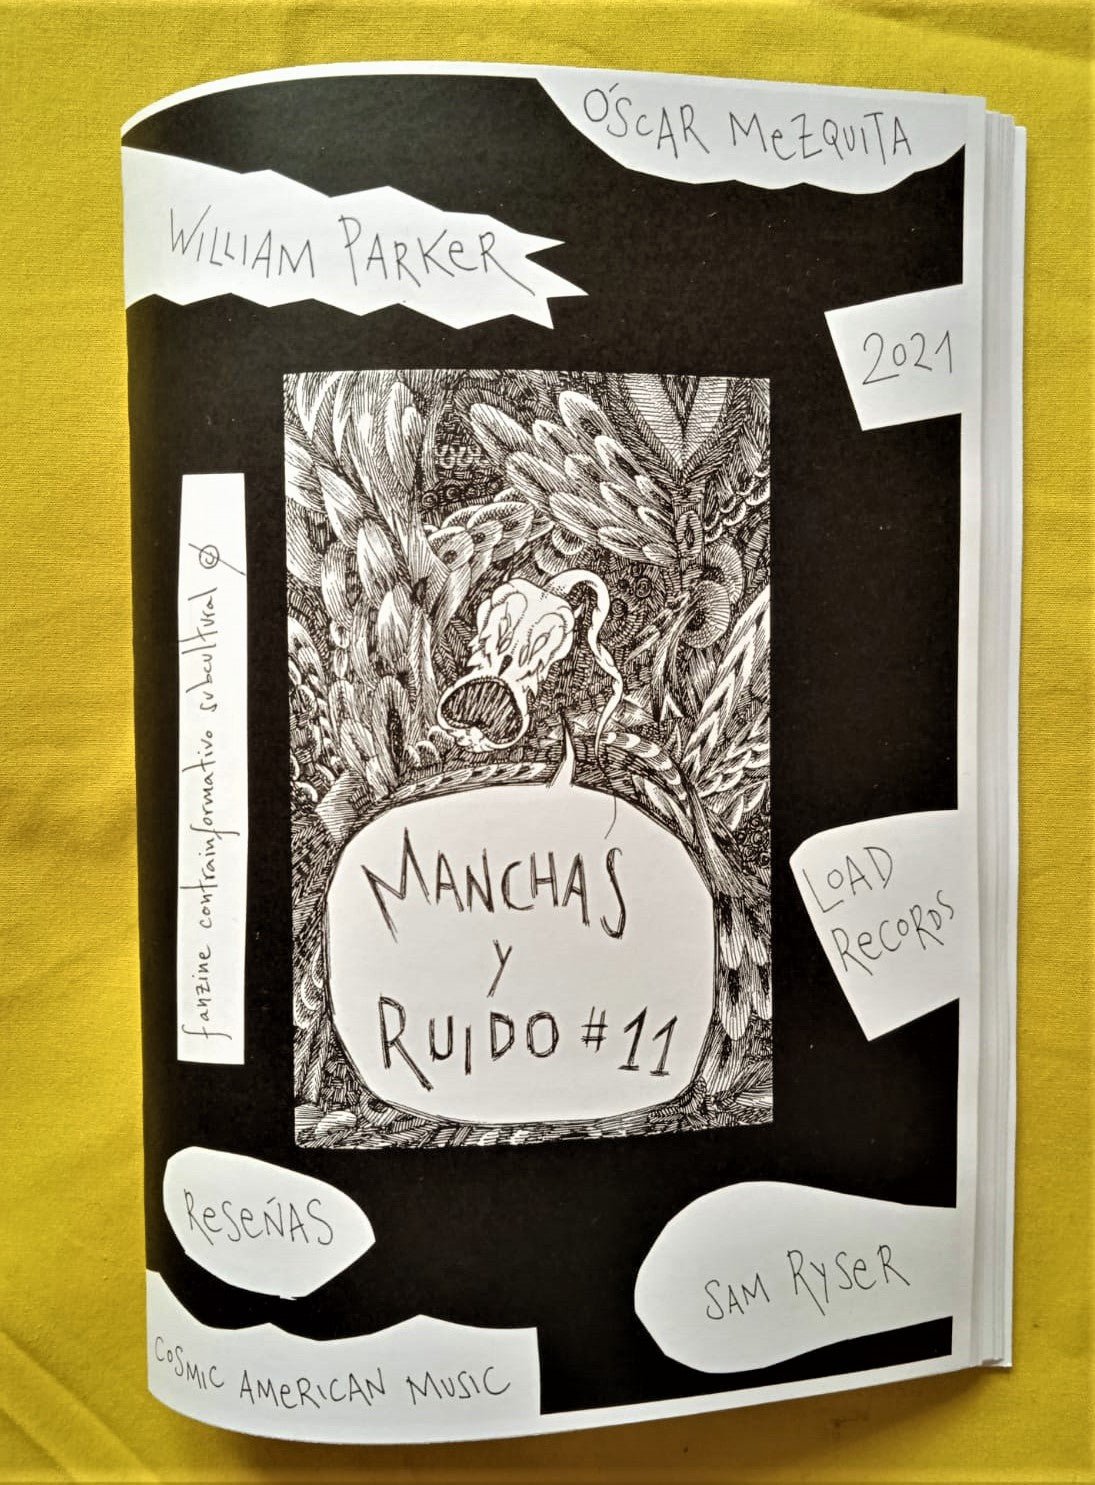 ÓSCAR MEZQUITA
WILLIAM PARKER
2021
fanzine contrainformativo subcultural
MANCHAS
Y
RUIDO #11
LOAD
RECORDS
RESEÑAS
SAM RYSER
COSMIC AMERICAN MUSIC